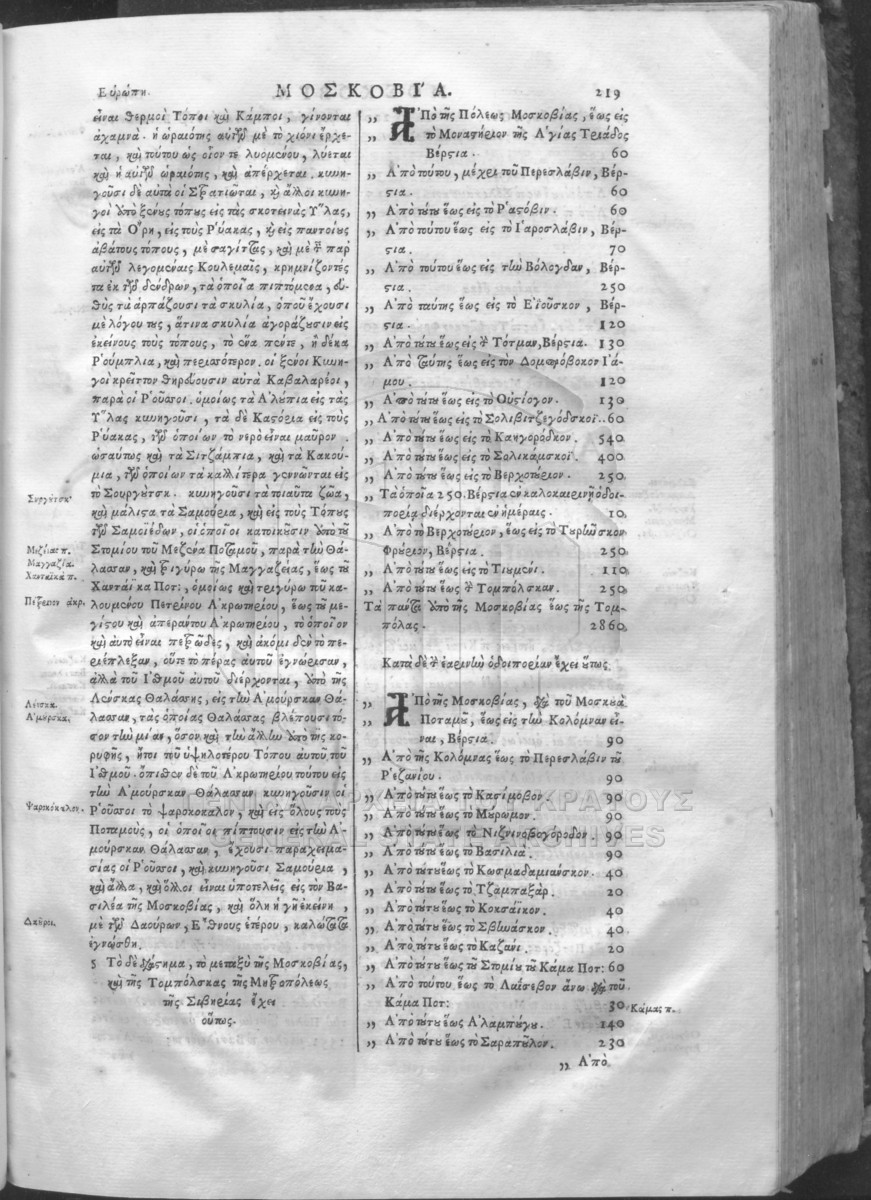 Εὐρώπη.
ΜΟΣΚΟΒΙ´Α.
219
εἶναι θερμοὶ Τόποι καὶ Κάμποι, γίνονται
ἀχαμνά. ἡ ὡραιότης αὐτῶν μὲ τὸ χιόνι ἔρχε-
ται, καὶ τούτου ὡς οἷόν τε λυομένου, λύεται
καὶ ἡ αὐτῶν ὡραιότης, καὶ ἀπέρχεται. κυνη-
γοῦσι δὲ αὐτὰ οἱ Στρατιῶται, καὶ ἄλλοι κυνη-
γοὶ ὑπὸ ξένους τόπους εἰς τὰς σκοτεινὰς Ὕλας,
εἰς τὰ Ὄρη, εἰς τοὺς Ῥύακας, καὶ εἰς παντοίους
ἀβάτους τόπους, μὲ σαγίττας, καὶ μὲ τὰς παρ'
αὐτῶν λεγομέναις Κουλεμαῖς, κρημνίζοντές
τα ἐκ τῶν δένδρων, τὰ ὁποῖα πιπτόμενα, εὐ-
θὺς τὰ ἁρπάζουσι τὰ σκυλία, ὁποῦ ἔχουσι
μὲ λόγου της, ἅτινα σκυλία ἀγοράζουσιν εἰς
ἐκείνους τοὺς τόπους, τὸ ἕνα πέντε, ἢ δέκα
Ῥούμπλια, καὶ περισσότερον. οἱ ξένοι Κυνη-
γοὶ κρεῖττον θηρεύουσιν αὐτὰ Καβαλαρέοι,
παρὰ οἱ Ῥοῦσσοι. ὁμοίως τὰ Ἀλύπια εἰς τὰς
Ὕλας κυνηγοῦσι, τὰ δὲ Καστόρια εἰς τοὺς
Ῥύακας, τῶν ὁποίων τὸ νερὸ εἶναι μαῦρον.
ὡσαύτως καὶ τὰ Σιτζάμπια, καὶ τὰ Κακού-
μια, τῶν ὁποίων τὰ καλλίτερα γεννῶνται εἰς
τὸ Σουργύτσκ. κυνηγοῦσι τὰ τοιαῦτα ζῶα,
καὶ μάλιστα τὰ Σαμούρια, καὶ εἰς τοὺς Τόπους
τῶν Σαμοιέδων, οἱ ὁποῖοι κατοικοῦσιν ὑπὸ τοῦ
Στομίου τοῦ Μεζένα Ποταμοῦ, παρὰ τὴν Θά-
λασσαν, καὶ τριγύρω τῆς Μαγγαζέιας, ἕως τοῦ
Χανταίκα Ποτ:, ὁμοίως καὶ τριγύρω τοῦ κα-
λουμένου Πετρίνου Ἀκρωτηρίου, ἕως τοῦ με-
γίστου καὶ ἀπεράντου Ἀκρωτηρίου, τὸ ὁποῖον
καὶ αὐτὸ εἶναι πετρῶδες, καὶ ἀκόμι δὲν τὸ πε-
ριέπλεξαν, οὔτε τὸ πέρας αὐτοῦ ἐγνώρισαν,
ἀλλὰ τοῦ Ἰσθμοῦ αὐτοῦ διέρχονται, ὑπὸ τῆς
Λένσκας Θαλάσσης, εἰς τὴν Ἀμούρσκαν Θά-
λασσαν, τὰς ὁποίας Θαλάσσας βλέπουσι τό-
σον τὴν μίαν, ὅσον καὶ τὴν ἄλλην ὑπὸ τῆς κο-
ρυφῆς, ἤτοι τοῦ ὑψηλοτέρου Τόπου αὐτοῦ τοῦ
Ἰσθμοῦ. ὄπισθεν δὲ τοῦ Ἀκρωτηρίου τούτου εἰς
τὴν Ἀμούρσκαν Θάλασσαν κυνηγοῦσιν οἱ
Ῥοῦσσοι τὸ ψαροκόκαλον, καὶ εἰς ὅλους τοὺς
Ποταμοὺς, οἱ ὁποῖοι πίπτουσιν εἰς τὴν Ἀ-
μούρσκαν Θάλασσαν, ἔχουσι παραχειμα-
σίας οἱ Ῥοῦσσοι, καὶ κυνηγοῦσι Σαμούρια,
καὶ ἄλλα, καὶ ὅλοι εἶναι ὑποτελεῖς εἰς τὸν Βα-
σιλέα τῆς Μοσκοβίας, καὶ ὅλη ἡ γῆ ἐκείνη,
μὲ τῶν Δαούρων, Ἔθνους ἑτέρου, καλώτατα
ἐγνώσθη.
5 Τὸ δὲ διάστημα, τὸ μεταξὺ τῆς Μοσκοβίας,
καὶ τῆς Τομπόλσκας τῆς Μητροπόλεως
τῆς Σιβηρίας ἔχει
οὕτως.
Μεζένας π.
Μαγγαζία.
Χανταϊκὰ π.
Πέτρινον ἀκρ.
Λένσκα.
Ἀμύρσκα.
Ψαροκόκαλον.
Δαῦροι.
„ ἈΠὸ τῆς Πόλεως Μοσκοβίας, ἕως εἰς
„ τὸ Μοναστήριον τῆς Ἁγίας Τριάδος
Βέρστια. 60
„ Ἀπὸ τούτου, μέχρι τοῦ Περεσλάβιν, Βέρ-
στια. 60
„ Ἀπὸ τούτου ἕως εἰς τὸ Ῥαστόβιν. 60
„ Ἀπὸ τούτου ἕως εἰς τὸ Ἰαροσλάβιν, Βέρ-
στια. 70
„ Ἀπὸ τούτου ἕως εἰς τὴν Βόλογδαν, Βέρ-
στια. 250
„ Ἀπὸ ταύτης ἕως εἰς τὸ Ἐϊοῦσκον, Βέρ-
στια. 120
„ Ἀπὸ τούτου ἕως εἰς τὴν Τότμαν, Βέρστια. 130
„ Ἀπὸ ταύτης ἕως εἰς τὸν Δομπρόβοκον Ἰά-
μου. 120
„ Ἀπὸ τούτου ἕως εἰς τὸ Οὐστίογον. 130
„ Ἀπὸ τούτου ἕως εἰς τὸ Σολιβιτζεγόδσκοϊ. 60
„ Ἀπὸ τούτου ἕως εἰς τὸ Καηγορόδκον. 540
„ Ἀπὸ τούτου ἕως εἰς τὸ Σολικάμσκοϊ. 400
„ Ἀπὸ τούτου ἕως εἰς τὸ Βερχοτούριον. 250
„ Τὰ ὁποῖα 250. Βέρστια ἐν καλοκαιρινῇ ὁδοι-
πορίᾳ διέρχονται ἐν ἡμέραις. 10
„ Ἀπὸ τὸ Βερχοτούριον, ἕως εἰς τὸ Τυριῶσκον
Φρούριον, Βέρστια. 250
„ Ἀπὸ τούτου ἕως εἰς τὸ Τιουμένι. 110
„ Ἀπὸ τούτου ἕως τὴν Τομπόλσκαν. 250
Τὰ πάντα ὑπὸ τῆς Μοσκοβίας ἕως τῆς Τομ-
πόλας. 2860
Κατὰ δὲ τὴν ἐαρινὴν ὁδοιπορίαν ἔχει οὕτως.
„ ἈΠὸ τῆς Μοσκοβίας, διὰ τοῦ Μοσκουὰ
„ Ποταμοῦ, ἕως εἰς τὴν Κολόμναν εἶ-
ναι, Βέρστια. 90
„ Ἀπὸ τῆς Κολόμνας ἕως τὸ Περεσλάβιν τοῦ
Ῥεζανίου. 90
„ Ἀπὸ τούτου ἕως τὸ Κασίμοβον. 90
„ Ἀπὸ τούτου ἕως τὸ Μύρωμον. 90
„ Ἀπὸ τούτου ἕως τὸ Νιζνινοβογόροδον. 90
„ Ἀπὸ τούτου ἕως τὸ Βασιλιά. 90
„ Ἀπὸ τούτου ἕως τὸ Κωσμαδαμιάνσκον. 40
„ Ἀπὸ τούτου ἕως τὸ Τζαμπαξάρ. 20
„ Ἀπὸ τούτου ἕως τὸ Κοκσάϊκον. 40
„ Ἀπὸ τούτου ἕως τὸ Σβιωάσκον. 40
„ Ἀπὸ τούτου ἕως τὸ Καζάνι. 20
„ Ἀπὸ τούτου ἕως τοῦ Στομίου τοῦ Κάμα Ποτ: 60
„ Ἀπὸ τούτου ἕως τὸ Λαΐσεβον ἄνω διὰ τοῦ
Κάμα Ποτ: 30
„ Ἀπὸ τούτου ἕως Ἀλαμπούγου. 140
„ Ἀπὸ τούτου ἕως τὸ Σαραπῦλον. 230
Κάμας π.
„ Ἀπὸ
ΓΕΝΙΚΑ ΑΡΧΕΙΑ ΤΟΥ ΚΡΑΤΟΥΣ
GENERAL STATE ARCHIVES